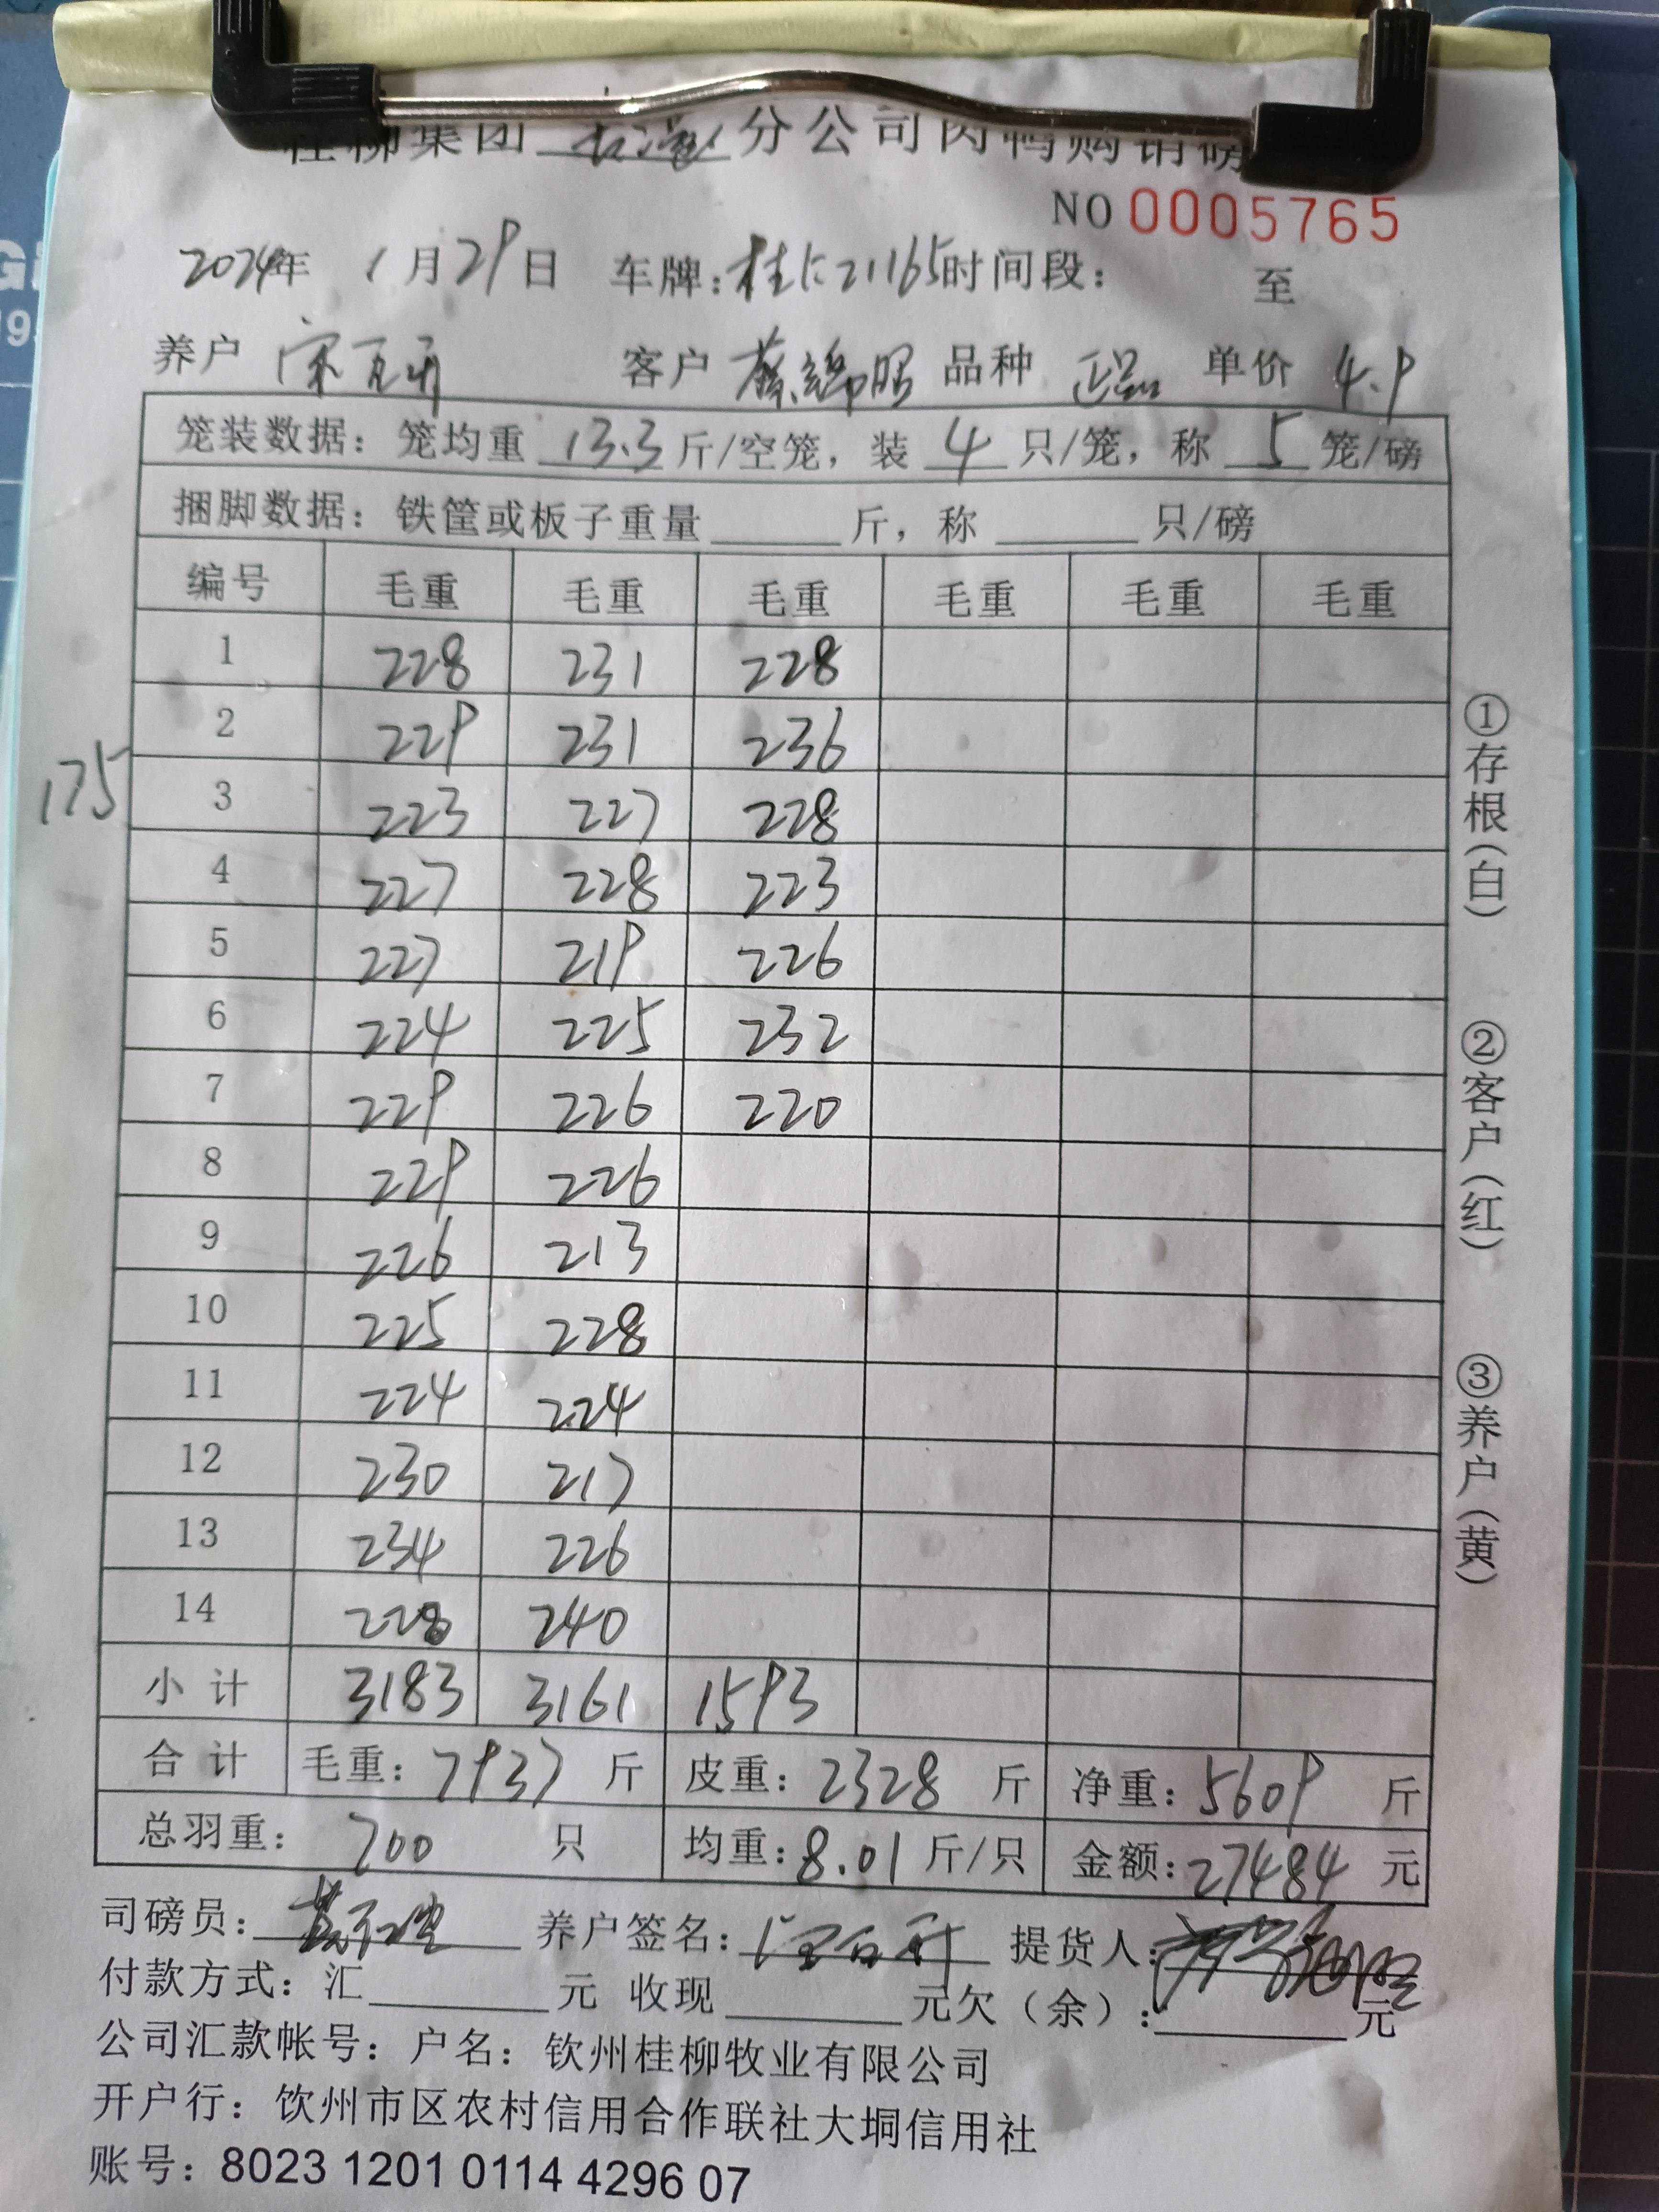 桂柳集团 分公司肉鸭购销磅
NO 0005765
2024年 1月29日 车牌: 21165 时间段: 至
养户 客户 蔡锦昭 品种 正品 单价 4.9
笼装数据: 笼均重 13.3 斤/空笼, 装 4 只/笼, 称 5 笼/磅
捆脚数据: 铁筐或板子重量 斤, 称 只/磅
编号 毛重 毛重 毛重 毛重 毛重 毛重
1 228 231 228
2 229 231 236
175
3 223 227 228
4 227 228 223
5 227 219 226
6 224 225 232
7 229 226 220
8 229 226
9 226 213
10 225 228
11 224 224
12 230 217
13 234 226
14 228 240
小计 3183 3161 1593
合计 毛重: 7937 斤 皮重: 2328 斤 净重: 5609 斤
总羽重: 700 只 均重: 8.01 斤/只 金额: 27484 元
司磅员: 养户签名: 提货人:
付款方式: 汇 元 收现 元欠(余): 元
公司汇款帐号: 户名: 钦州桂柳牧业有限公司
开户行: 钦州市区农村信用合作联社大垌信用社
账号: 8023 1201 0114 4296 07
①存根(白) ②客户(红) ③养户(黄)